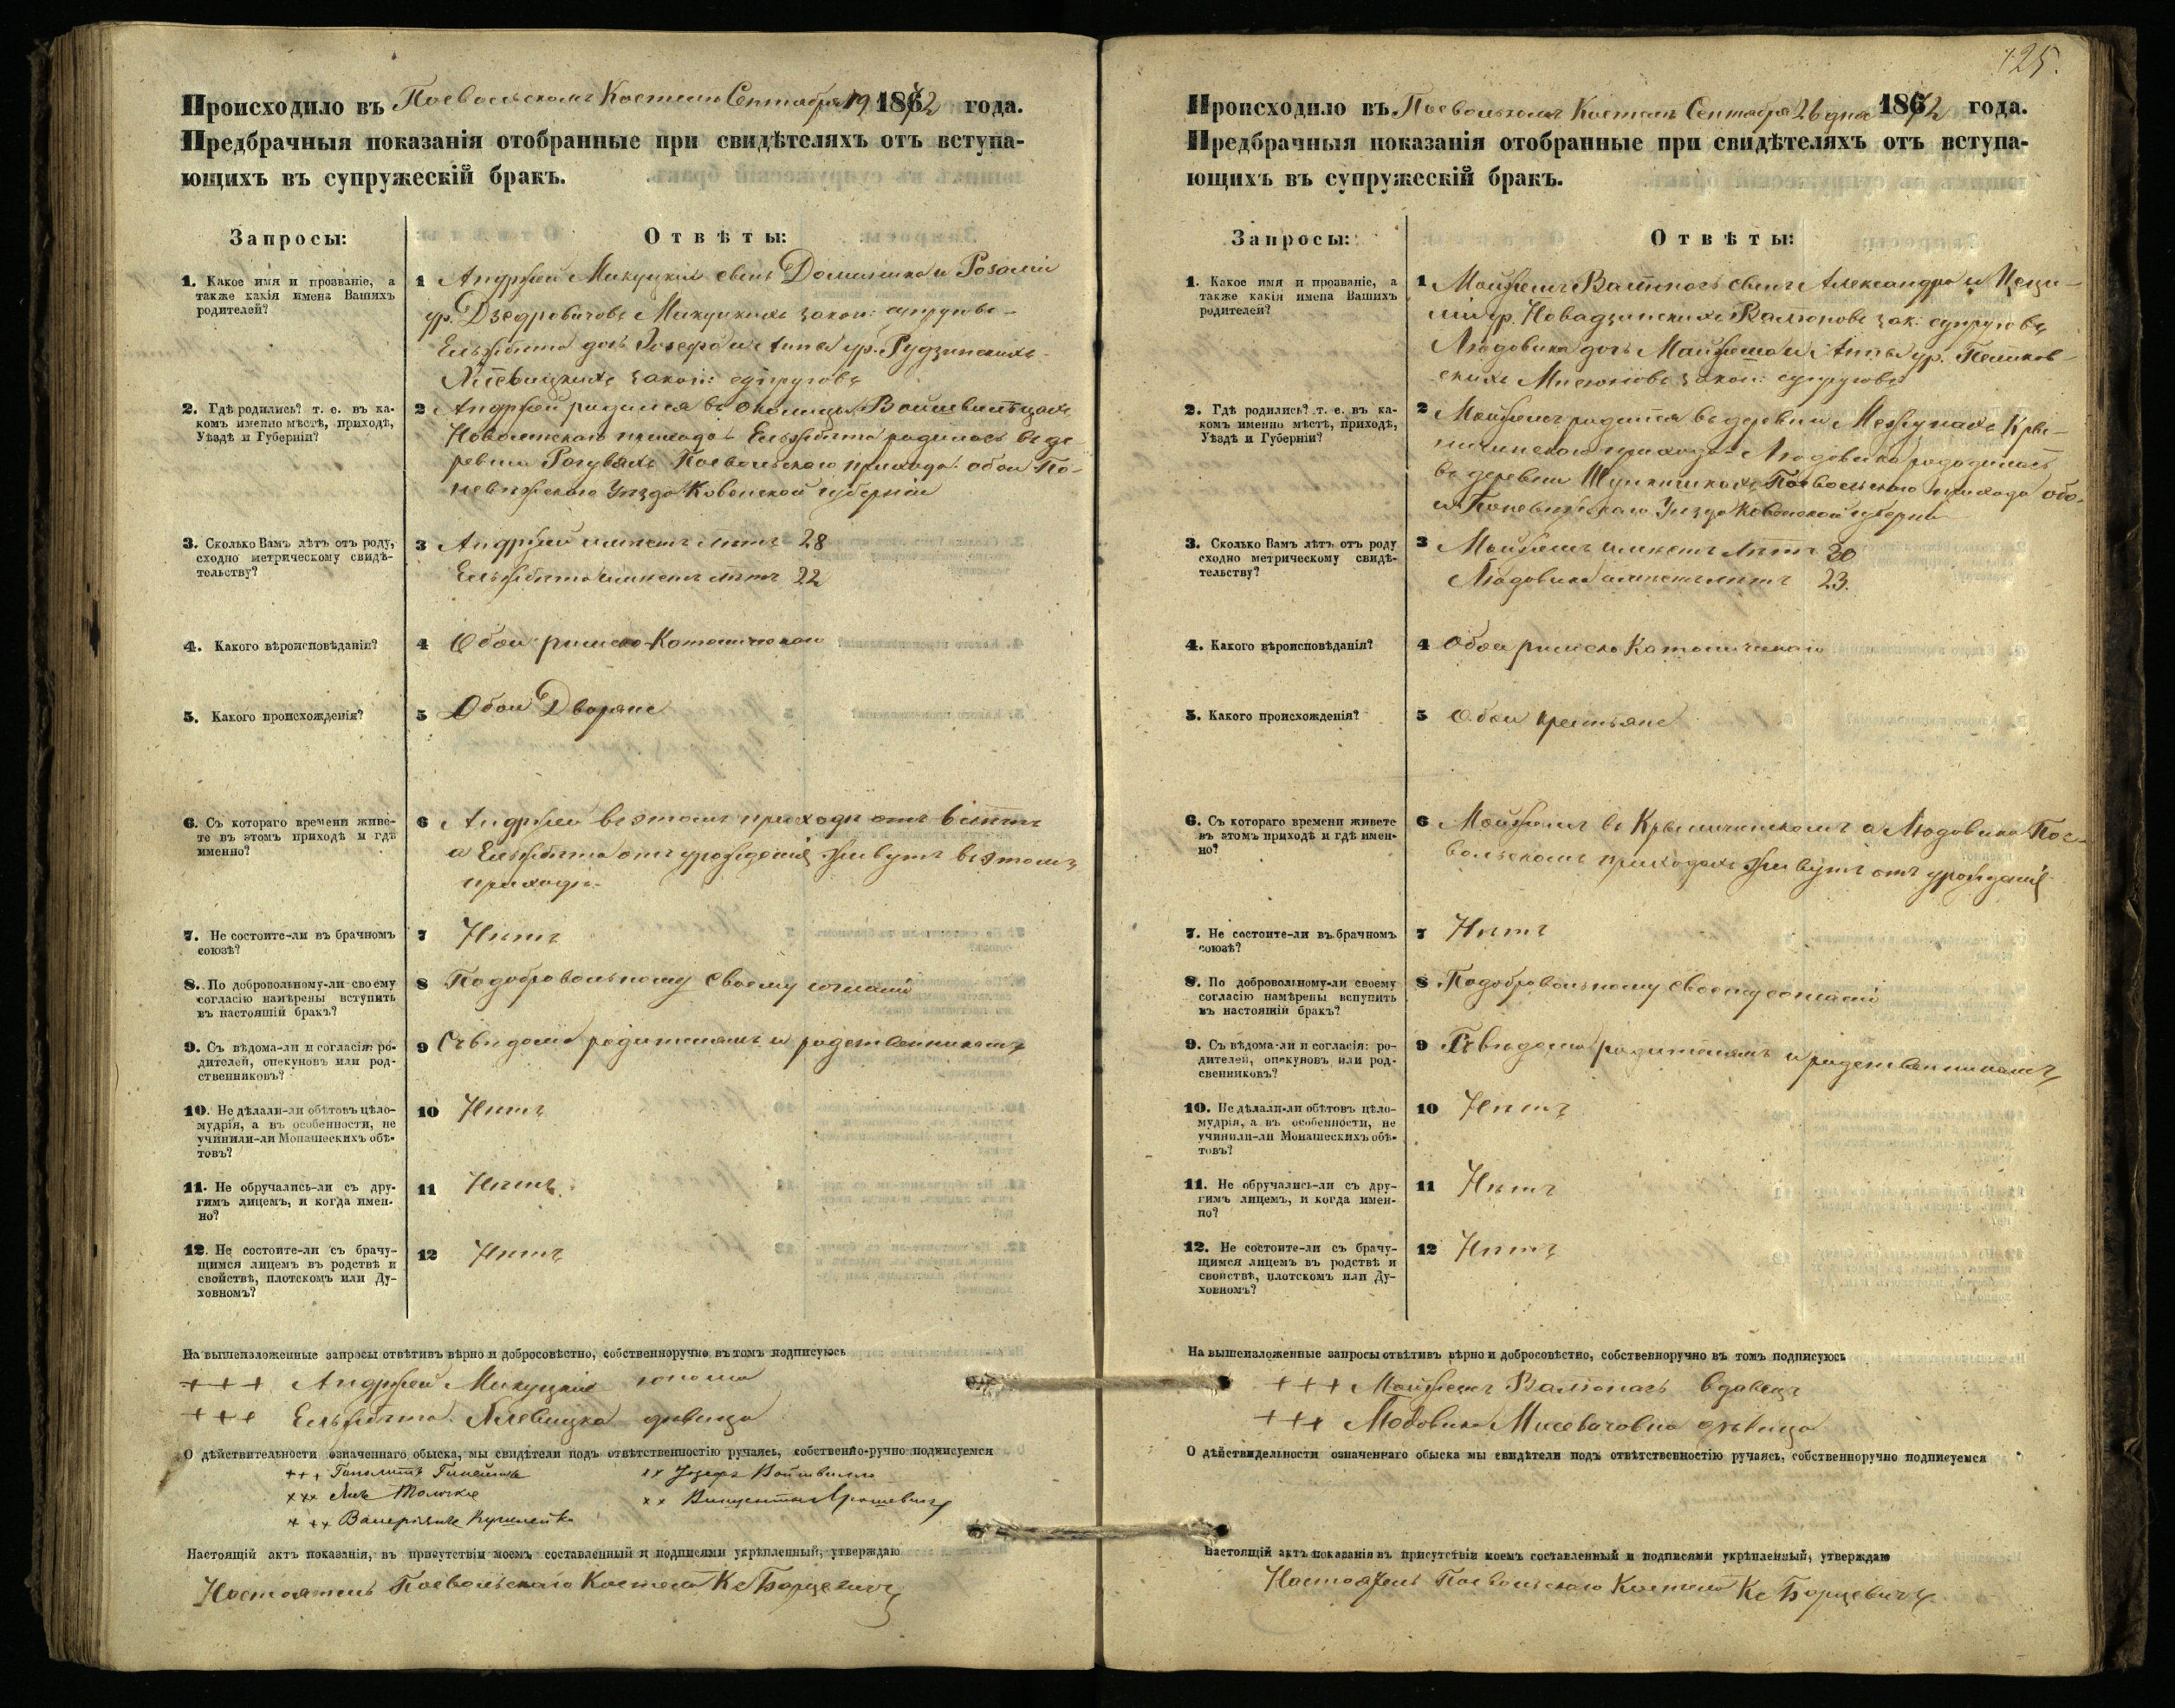 Происходило въ Поевольскомъ Костелѣ Сентября 19 1872 года.
Предбрачныя показанія отобранные при свидѣтеляхъ отъ вступа-
ющихъ въ супружескій бракъ.
Запросы:
Отвѣты:
1. Какое имя и прозваніе, а
также какія имена Вашихъ
родителей?
1 Андржей Микуцкій сынъ Доминика и Розаліи
ур. Дзедровичовъ Микуцкихъ закон: супруговъ –
Ельжбѣта дочь Іосефа и Анны ур. Рудзинскихъ
закон: супруговъ
2. Гдѣ родились? т. е. въ ка-
комъ именно мѣстѣ, приходѣ,
Уѣздѣ и Губерніи?
2 Андржей родился въ околицѣ
прихода Ельжбѣта родилась въ де-
ревни Поевольскаго прихода обои По-
невѣжскаго Уѣзда Ковенской губерніи
3. Сколько Вамъ лѣтъ отъ роду,
сходно метрическому свидѣ-
тельству?
3 Андржей имѣетъ лѣтъ 28
Ельжбѣта имѣетъ лѣтъ 22
4. Какого вѣроисповѣданія?
4 Обои римско-Католическаго
5. Какого происхожденія?
5 Обои Дворяне
6. Съ котораго времени живе-
те въ этомъ приходѣ и гдѣ
именно?
6 Андржей въ этомъ приходѣ отъ 6 лѣтъ
а Ельжбѣта отъ урожденія живутъ въ этомъ
приходѣ.
7. Не состоите-ли въ брачномъ
союзѣ?
7 Нѣтъ
8. По добровольному-ли своему
согласію намѣрены вступить
въ настоящій бракъ?
8 Подобровольному своему согласію
9. Съ вѣдома-ли и согласія: ро-
дителей, опекуновъ или род-
ственниковъ?
9 Съ вѣдома родителямъ и родственникамъ
10. Не дѣлали-ли обѣтовъ цѣло-
мудрія, а въ особенности, не
учинили-ли Монашескихъ обѣ-
товъ?
10 Нѣтъ
11. Не обручались-ли съ дру-
гимъ лицемъ, и когда имен-
но?
11 Нѣтъ
12. Не состоите-ли съ брачу-
щимся лицемъ въ родствѣ и
свойствѣ, плотскомъ или Ду-
ховномъ?
12 Нѣтъ
На вышеизложенные запросы отвѣтивъ вѣрно и добросовѣстно, собственноручно въ томъ подписуюсь
+++ Андржей Микуцкій юноша
+++ Ельжбѣта дѣвица
О дѣйствительности означеннаго обыска, мы свидѣтели подъ отвѣтственностію ручаясь, собственно-ручно подписуемся
+++
xx Іозефъ Войтвилло
xxx
xx Винцентъ
+++
Настоящій актъ показанія, въ присутствіи моемъ составленный и подписями укрѣпленный, утверждаю
Настоятель Поевольскаго Костела Кс Борцевичъ
125.
Происходило въ Поевольскомъ Костелѣ Сентября 26 дня 1872 года.
Предбрачныя показанія отобранные при свидѣтеляхъ отъ вступа-
ющихъ въ супружескій бракъ.
Запросы:
Отвѣты:
1. Какое имя и прозваніе, а
также какія имена Вашихъ
родителей?
1 Мойжешъ Валюнасъ сынъ Александра и Цеци-
ліи ур. Новадзинскихъ Валюновъ зак: супруговъ
Людовика дочь Мойжеша и Анны ур. Петков-
скихъ закон: супруговъ
2. Гдѣ родились? т. е. въ ка-
комъ именно мѣстѣ, приходѣ,
Уѣздѣ и Губерніи?
2 Мойжешъ родился въ деревни Кре-
прихода Людовика
въ деревни Поевольскаго прихода обо-
и Поневѣжскаго Уѣзда Ковенской губерніи
3. Сколько Вамъ лѣтъ отъ роду
сходно метрическому свидѣ-
тельству?
3 Мойжешъ имѣетъ лѣтъ 30
Людовика имѣетъ лѣтъ 23.
4. Какого вѣроисповѣданія?
4 Обои римско Католическаго
5. Какого происхожденія?
5 Обои крестьяне
6. Съ котораго времени живете
въ этомъ приходѣ и гдѣ имен-
но?
6 Мойжешъ въ а Людовика Пое-
вольскомъ приходахъ живутъ отъ урожденія
7. Не состоите-ли въ брачномъ
союзѣ?
7 Нѣтъ
8. По добровольному-ли своему
согласію намѣрены вспупить
въ настоящій бракъ?
8 Подобровольному своему согласію
9. Съ вѣдома-ли и согласія: ро-
дителей, опекуновъ или род-
свенниковъ?
9 Съ вѣдома родителямъ и родственникамъ
10. Не дѣлали-ли обѣтовъ цѣло-
мудрія, а въ особенности, не
учинили-ли Монашескихъ обѣ-
товъ?
10 Нѣтъ
11. Не обручались-ли съ дру-
гимъ лицемъ, и когда имен-
но?
11 Нѣтъ
12. Не состоите-ли съ брачу-
щимся лицемъ въ родствѣ и
свойствѣ, плотскомъ или Ду-
ховномъ?
12 Нѣтъ
На вышеизложенные запросы отвѣтивъ вѣрно и добросовѣстно, собственноручно въ томъ подписуюсь
+++ Мойжешъ Валюнасъ вдовецъ
+++ Людовика дѣвица
О дѣйствидельности означеннаго обыска мы свидѣтели подъ отвѣтственностію ручаясь, собственноручно подписуемся
Настоящій актъ показанія въ присутствіи моемъ составленный и подписями укрѣпленный, утверждаю
Настоятель Поевольскаго Костела Кс Борцевичъ